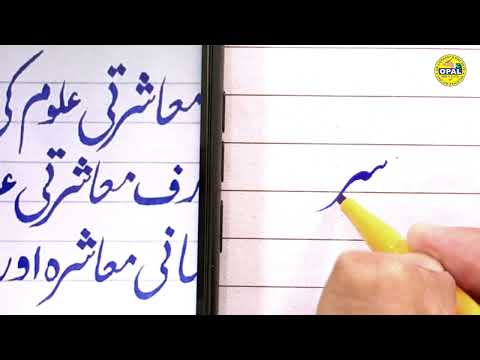 معاشرتی علوم کی
رف معاشرتی ع
سانی معاشرہ اور
OPAL